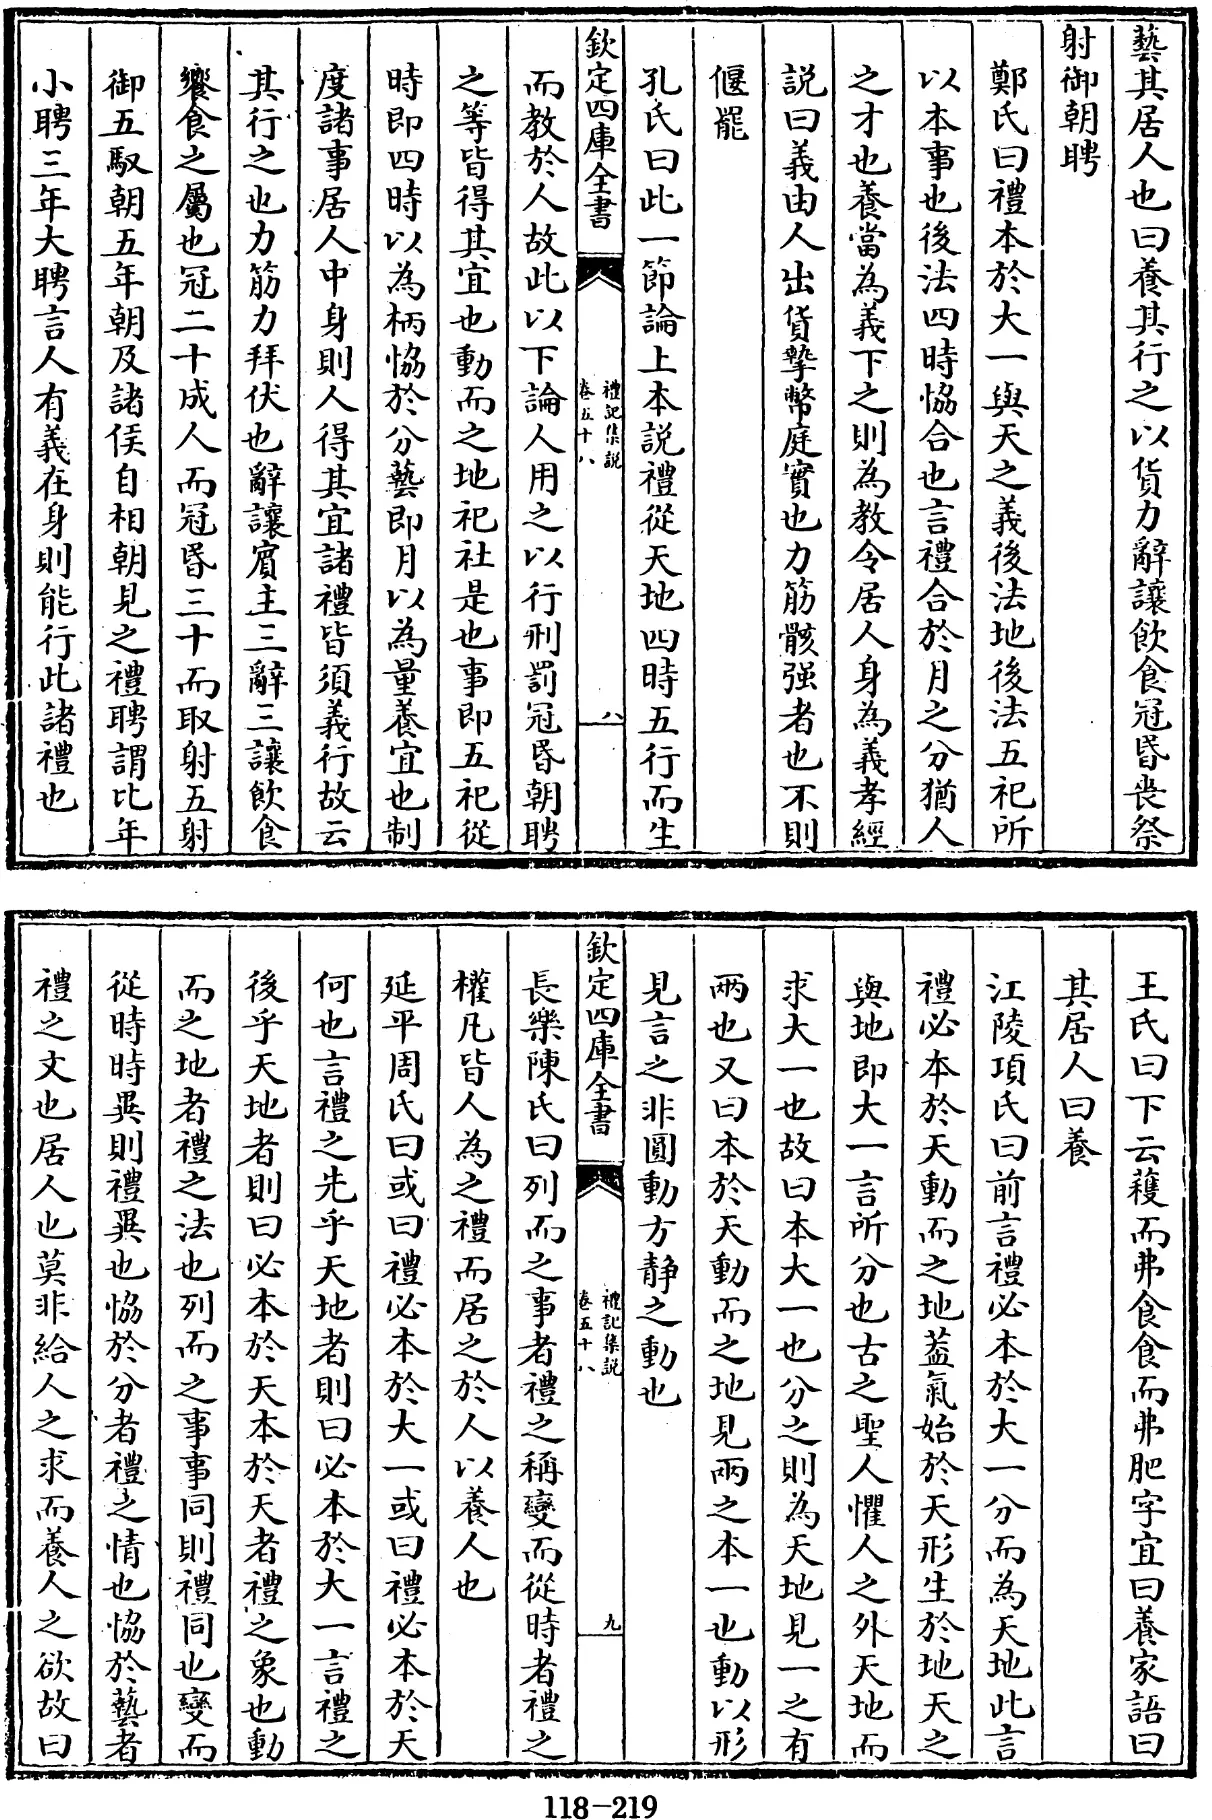 藝其居人也曰養其行之以貨力辭讓飲食冠昏喪祭
射御朝聘
鄭氏曰禮本於大一與天之義後法地後法五祀所
以本事也後法四時恊合也言禮合於月之分猶人
之才也養當為義下之則為教令居人身為義孝經
説曰義由人出貨摯幣庭實也力筋骸强者也不則
偃罷
孔氏曰此一節論上本説禮從天地四時五行而生
欽定四庫全書
禮記集説
卷五十八
八
而教於人故此以下論人用之以行刑罰冠昏朝聘
之等皆得其宜也動而之地祀社是也事即五祀從
時即四時以為柄恊於分藝即月以為量養宜也制
度諸事居人中身則人得其宜諸禮皆須義行故云
其行之也力筋力拜伏也辭讓賓主三辭三讓飲食
饗食之屬也冠二十成人而冠昏三十而取射五射
御五馭朝五年朝及諸侯自相朝見之禮聘謂比年
小聘三年大聘言人有義在身則能行此諸禮也
王氏曰下云穫而弗食食而弗肥字宜曰養家語曰
其居人曰養
江陵項氏曰前言禮必本於大一分而為天地此言
禮必本於天動而之地葢氣始於天形生於地天之
與地即大一言所分也古之聖人懼人之外天地而
求大一也故曰本大一也分之則為天地見一之有
兩也又曰本於天動而之地見兩之本一也動以形
見言之非圓動方静之動也
欽定四庫全書
禮記集説
卷五十八
九
長樂陳氏曰列而之事者禮之稱變而從時者禮之
權凡皆人為之禮而居之於人以養人也
延平周氏曰或曰禮必本於大一或曰禮必本於天
何也言禮之先乎天地者則曰必本於大一言禮之
後乎天地者則曰必本於天本於天者禮之象也動
而之地者禮之法也列而之事事同則禮同也變而
從時時異則禮異也恊於分者禮之情也恊於藝者
禮之文也居人也莫非給人之求而養人之欲故曰
118-219